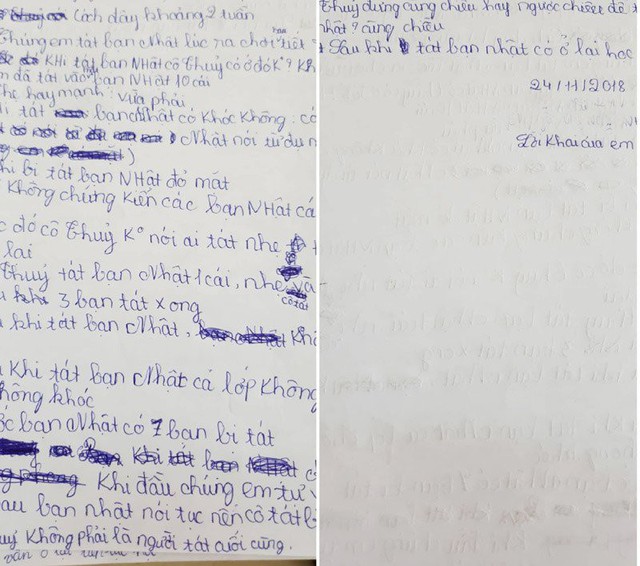 Cách đây khoảng 2 tuần
húng em tát bạn Nhật lúc ra chơi tiết
KHi tát bạn NHật cô Thuỷ có ở đó K°? Kh
m đã tát vào bạn NHật 10 cái
he hay mạnh: vừa phải
i tát bạn Nhật có Khóc Không: có
Nhật nói từ dụ n
hi bị tát bạn NHật đỏ mắt
Không chứng Kiến các bạn NHật cá
c đó cô Thuỷ K° nói ai tát nhẹ
lại
Thuỷ tát bạn Nhật 1 cái, nhẹ và
3 bạn tát xong
cô tát
khi tát bạn Nhật, Khi
Khi tát bạn Nhật cả lớp Không
hông khóc
ớc bạn Nhật có 7 bạn bị tát
Khi tát bạn
Khi đầu chúng em tự v
au bạn nhật nói tục nên cô tát b
uỷ Không phải là người tát cuối cùng.
Thuỷ đứng cùng chiều hay ngược chiều để t
nhật? cùng chiều
Sau khi tát bạn nhật có ở lại học
24/11/2018
Lời Khai của em